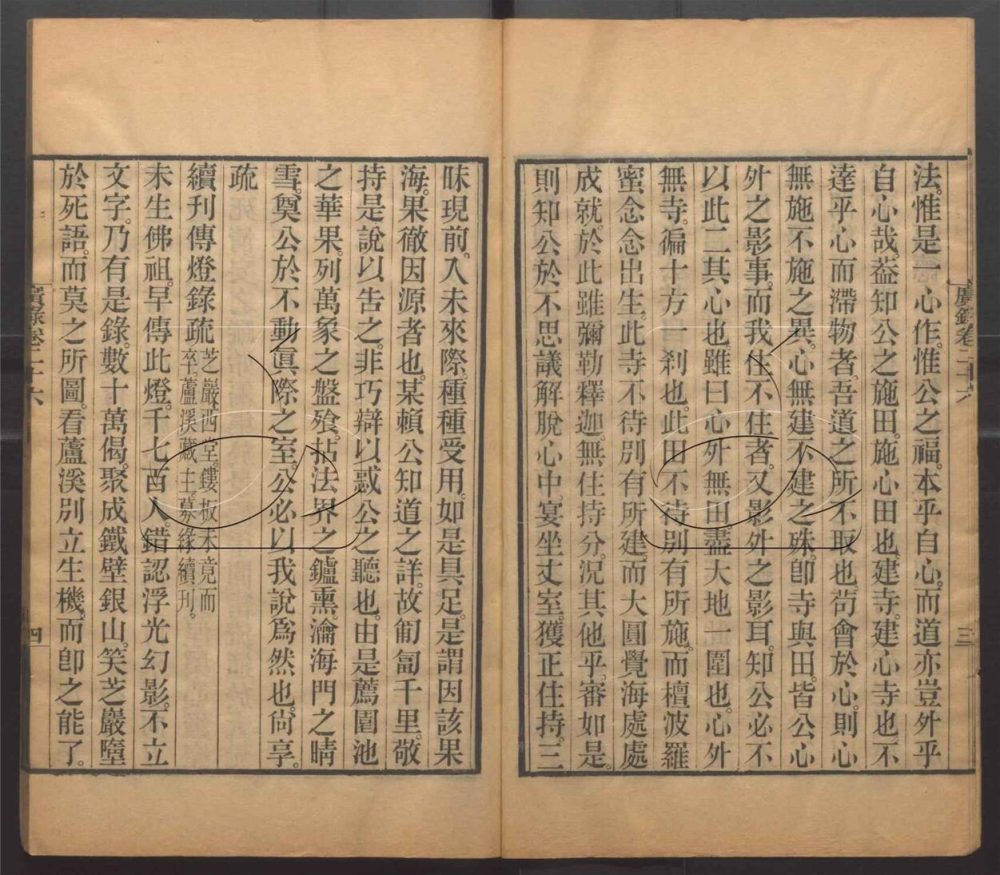 法惟是一心作惟公之福本乎自心而道亦豈外乎
自心哉葢知公之施田施心田也建寺建心寺也不
達乎心而滯物者吾道之所不取也茍會於心則心
無施不施之異心無建不建之殊卽寺與田皆公心
外之影事而我住不住者又影外之影耳知公必不
以此二其心也雖曰心外無田盡大地一圍也心外
無寺徧十方一刹也此田不待別有所施而檀波羅
蜜念念出生此寺不待別有所建而大圓覺海處處
成就於此雖彌勒釋迦無住持分況其他乎審如是
則知公於不思議解脫心中宴坐丈室獲正住持三
廣錄卷二十六
三
昧現前入未來際種種受用如是具足是謂因該果
海果徹因源者也某賴公知道之詳故匍匐千里敬
持是說以告之非巧辯以惑公之聽也由是薦園池
之華果列萬象之盤飱拈法界之鑪熏瀹海門之晴
雪奠公於不動眞際之室公必以我說爲然也尚享
疏
續刊傳燈錄疏芝巖西堂鏤板未竟而
卒蘆溪藏主募緣續刊
未生佛祖早傳此燈千七百人錯認浮光幻影不立
文字乃有是錄數十萬偈聚成鐵壁銀山笑芝巖墮
於死語而莫之所圖看蘆溪別立生機而卽之能了
廣錄卷二十六
四